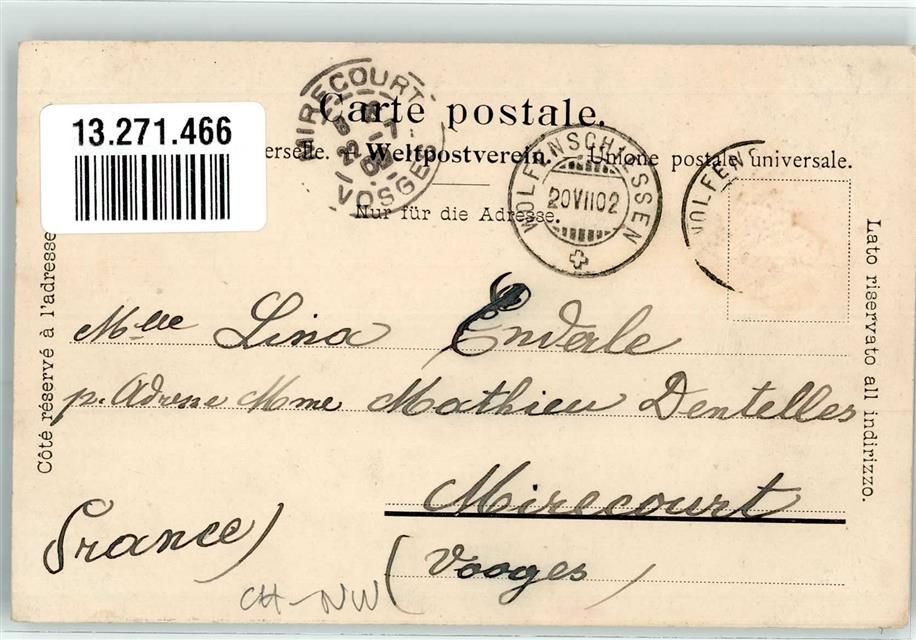 Carte postale.
13.271.466
erselle. – Weltpostverein. – Unione postale universale.
Nur für die Adresse.
MIRECOURT
VOSGES
WOLFENSCHIESSEN
20 VII 02
WOLFENS
Côté réservé à l'adresse
Lato riservato all indirizzo.
Mlle Lina Enderle
p. Adresse Mme Mathieu Dentelles
Mirecourt
France)
(Vosges)
CH-NW